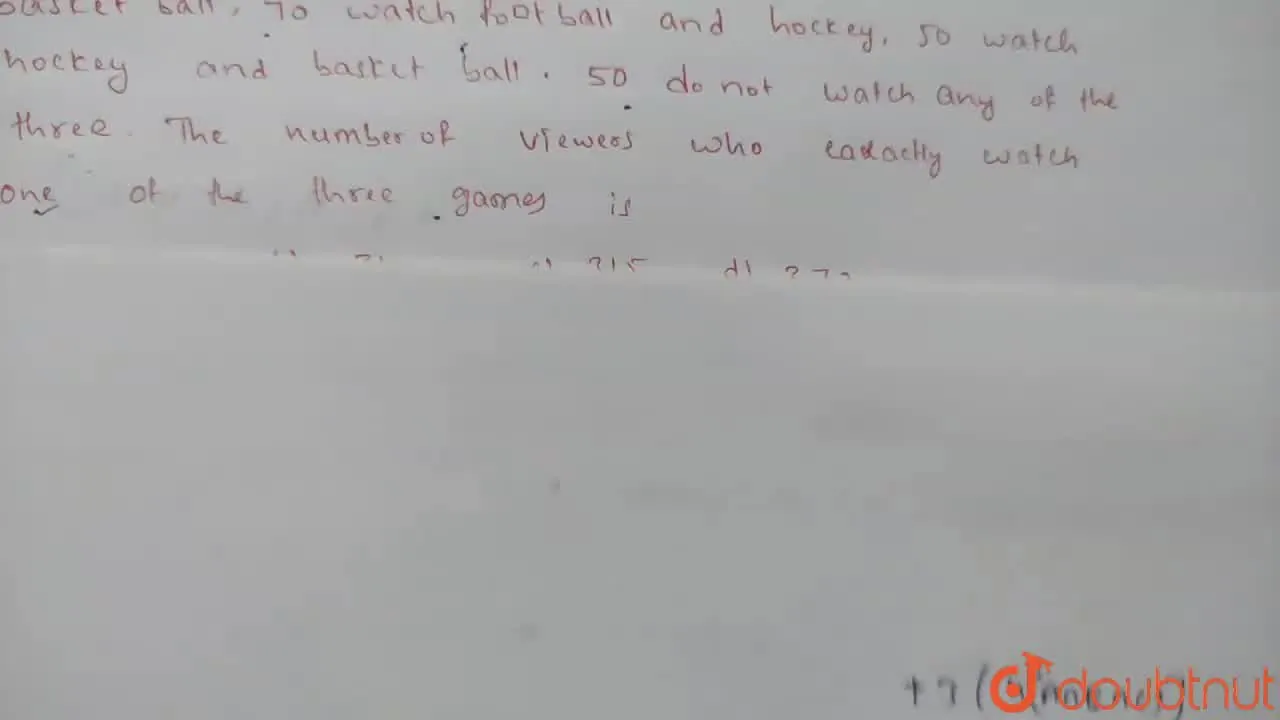 basket ball. 70 watch football and hockey, 50 watch
hockey and basket ball. 50 do not watch any of the
three. The number of viewers who exactly watch
one of the three games is
315 d)
+ 7 (
doubtnut